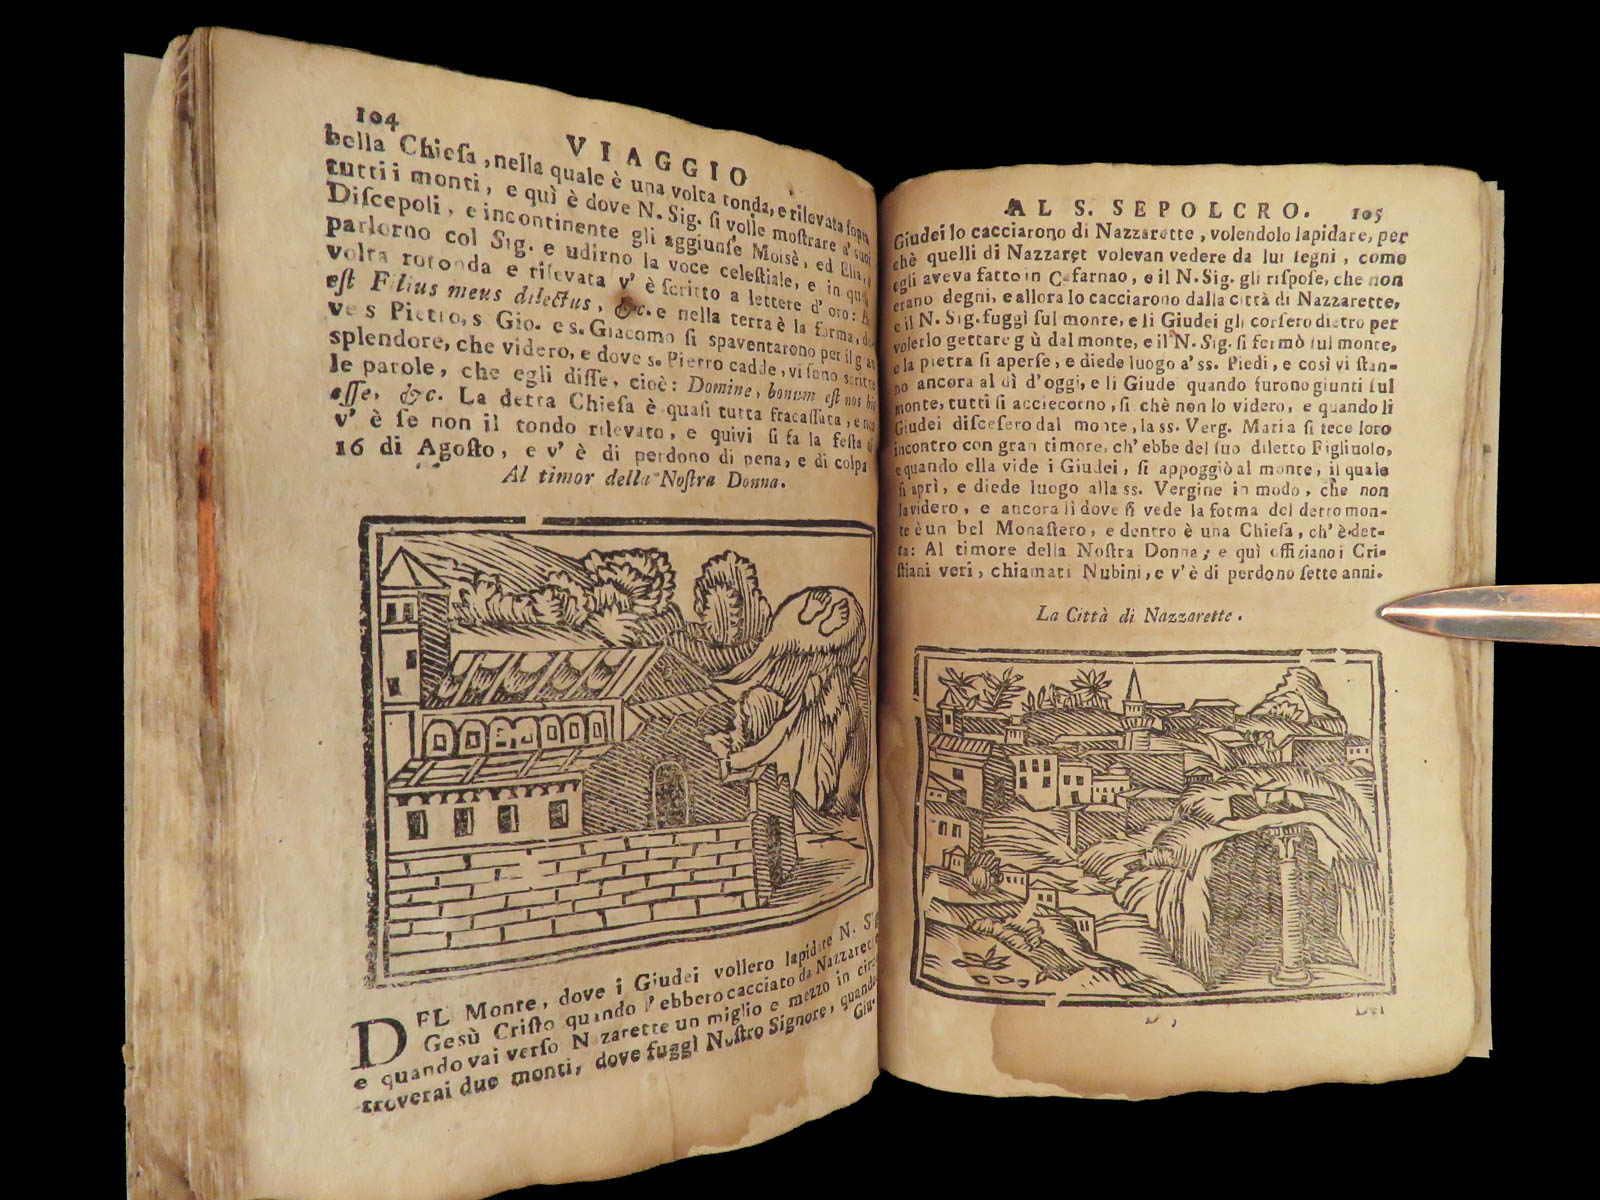 104
VIAGGIO
bella Chieſa, nella quale è una volta tonda, e rilevata ſopra
tutti i monti, e quì è dove N. Sig. ſi volle moſtrare a' ſuoi
Diſcepoli, e incontinente gli aggiunſe Moisè, ed Elia, e
parlorno col Sig. e udirno la voce celeſtiale, e in
volta rotonda e rilevata v' è ſcritto a lettere d' oro:
eſt Filius meus dilectus, &c. e nella terra è la forma,
ve s Pietro, s Gio. e s. Giacomo ſi spaventarono per il
splendore, che videro, e dove s. Pietro cadde, vi ſono ſcritte
le parole, che egli diſſe, cioè: Domine, bonum eſt nos hic
eſſe, &c. La detta Chieſa è quaſi tutta fracaſſata, e non
v' è ſe non il tondo rilevato, e quivi ſi fa la feſta
16 di Agoſto, e v' è di perdono di pena, e di colpa
Al timor della Noſtra Donna.
DEL Monte, dove i Giudei vollero lapidare N. Sig
Gesù Criſto quando l' ebbero cacciato da Nazzarette
e quando vai verſo Nazarette un miglio e mezzo in circa
troverai due monti, dove fuggì Noſtro Signore, quando
Giu-
AL S. SEPOLCRO. 105
Giudei lo cacciarono di Nazzarette, volendolo lapidare, per
chè quelli di Nazzaret volevan vedere da lui ſegni, come
egli aveva fatto in Cafarnao, e il N. Sig. gli riſpoſe, che non
erano degni, e allora lo cacciarono dalla città di Nazzarette,
e il N. Sig. fuggì ſul monte, e li Giudei gli corſero dietro per
volerlo gettare g ù dal monte, e il N. Sig. ſi fermò ſul monte,
e la pietra ſi aperſe, e diede luogo a' ss. Piedi, e così vi ſtan-
no ancora al dì d' oggi, e li Giude quando furono giunti ſul
monte, tutti ſi acciecorno, ſi chè non lo videro, e quando li
Giudei diſceſero dal monte, la ss. Verg. Maria ſi fece loro
incontro con gran timore, ch' ebbe del ſuo diletto Figliuolo,
e quando ella vide i Giudei, ſi appoggiò al monte, il quale
ſi aprì, e diede luogo alla ss. Vergine in modo, che non
la videro, e ancora lì dove ſi vede la forma del detto mon-
te è un bel Monaſtero, e dentro è una Chieſa, ch' è det-
ta: Al timore della Noſtra Donna; e quì offiziano i Cri-
ſtiani veri, chiamati Nubini, e v' è di perdono ſette anni.
La Città di Nazzarette.
Del